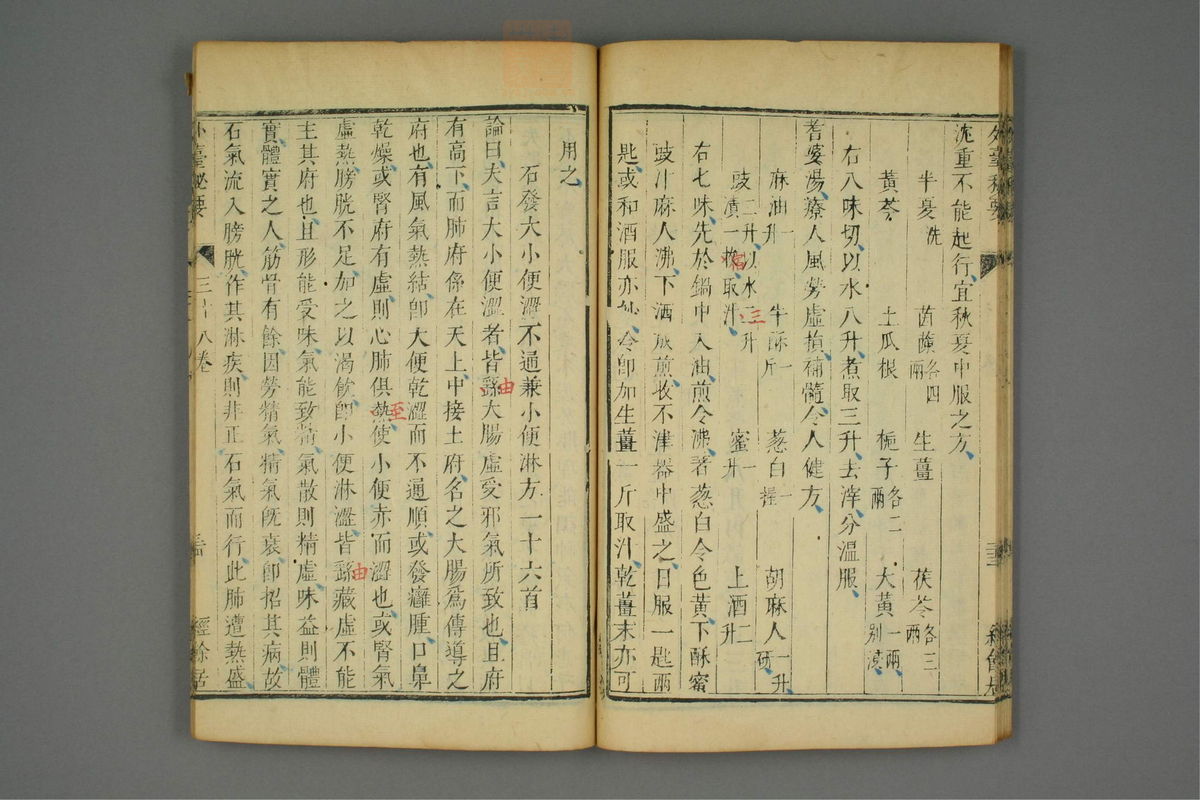 沈重不能起行宜秋夏中服之方
半夏洗 茵蔯各四兩 生薑 茯苓各三兩
黃芩 土瓜根 梔子各二兩 大黃一兩別漬
右八味切以水八升煮取三升去滓分溫服
耆婆湯療人風勞虛損補髓令人健方
麻油一升 牛酥一斤 蔥白一握 胡麻人一升研
豉二升以水二升漬一宿取汁 三 蜜一升 上酒二升
右七味先於鍋中入油煎令沸著蔥白令色黃下酥蜜
豉汁麻人沸下酒成煎收不津器中盛之日服一匙兩
匙或和酒服亦妙冷卽加生薑一斤取汁乾薑末亦可
用之
石發大小便澀不通兼小便淋方一十六首
論曰夫言大小便澀者皆繇大腸虛受邪氣所致也且府
由
有高下而肺府係在天上中接土府名之大腸爲傳導之
府也有風氣熱結卽大便乾澀而不通順或發癰腫口鼻
乾燥或腎府有虛則心肺俱熱使小便赤而澀也或腎氣
至
虛熱膀胱不足加之以渴飮卽小便淋澀皆繇藏虛不能
由
主其府也且形能受味氣能致精氣散則精虛味益則體
實體實之人筋骨有餘因勞精氣精氣旣衰卽招其病故
石氣流入膀胱作其淋疾則非正石氣而行此肺遭熱盛
外臺秘要 三十八卷 經餘居